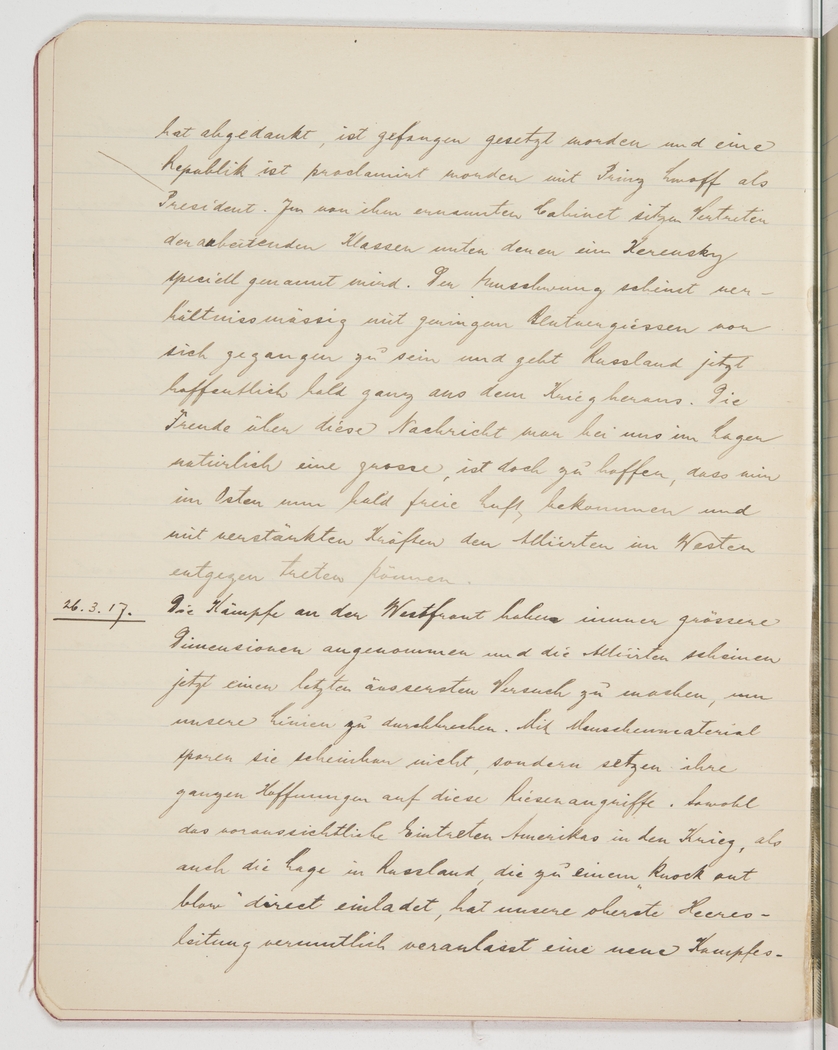 hat abgedankt, ist gefangen gesetzt worden und eine
Republik ist proclamirt worden mit Prinz Lwoff als
President. Im von ihm ernannten Cabinet sitzen Vertreter
der arbeitenden Klassen unter denen ein Kerensky
speciell genannt wird. Der Umschwung scheint ver-
hältnissmässig mit geringem Blutvergiessen vor
sich gegangen zu sein und geht Russland jetzt
hoffentlich bald ganz aus dem Krieg heraus. Die
Freude über diese Nachricht war bei uns im Lager
natürlich eine grosse, ist doch zu hoffen, dass wir
im Osten nun bald freie Luft bekommen und
mit verstärkten Kräften den Alliirten im Westen
entgegen treten können.
26.3.17. Die Kämpfe an der Westfront haben immer grössere
Dimensionen angenommen und die Alliirten scheinen
jetzt einen letzten äussersten Versuch zu machen, um
unsere Linien zu durchbrechen. Mit Menschenmaterial
sparen sie scheinbar nicht, sondern setzen ihre
ganzen Hoffnungen auf diese Riesenangriffe. Sowohl
das voraussichtliche Eintreten Amerikas in den Krieg, als
auch die Lage in Russland, die zu einem "Knock out
blow" direct einladet, hat unsere oberste Heeres-
leitung vermutlich veranlasst eine neue Kampfes-